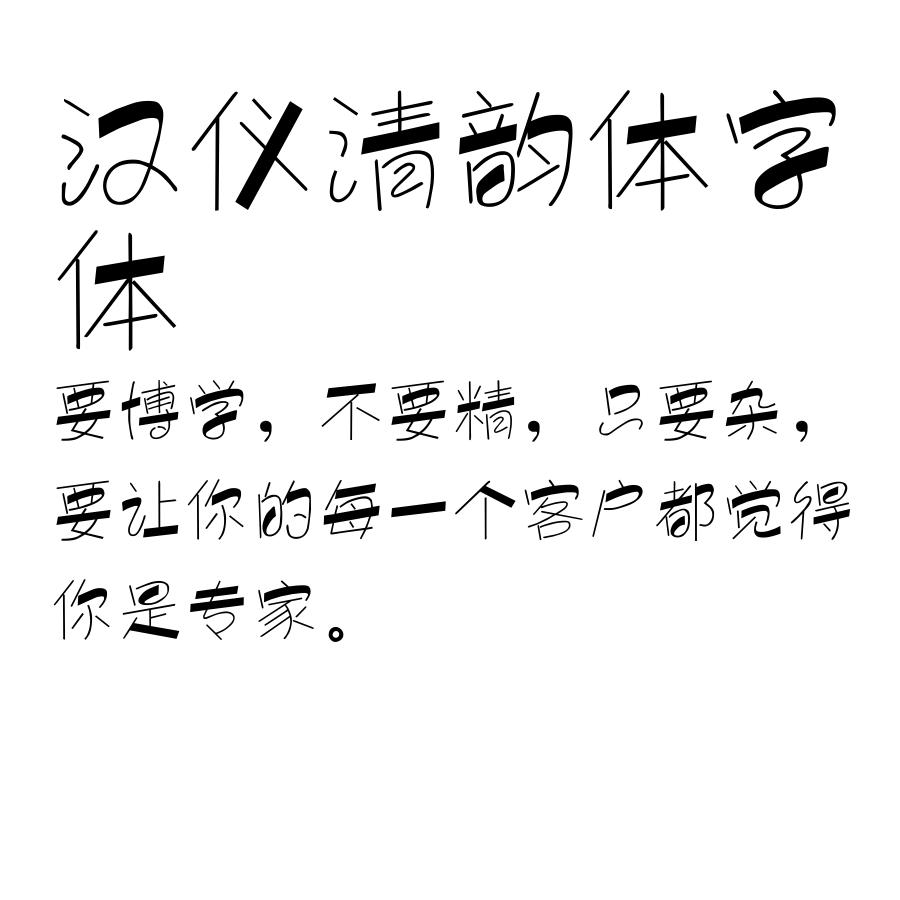 汉仪清韵体字
体
要博学，不要精，只要杂，
要让你的每一个客户都觉得
你是专家。